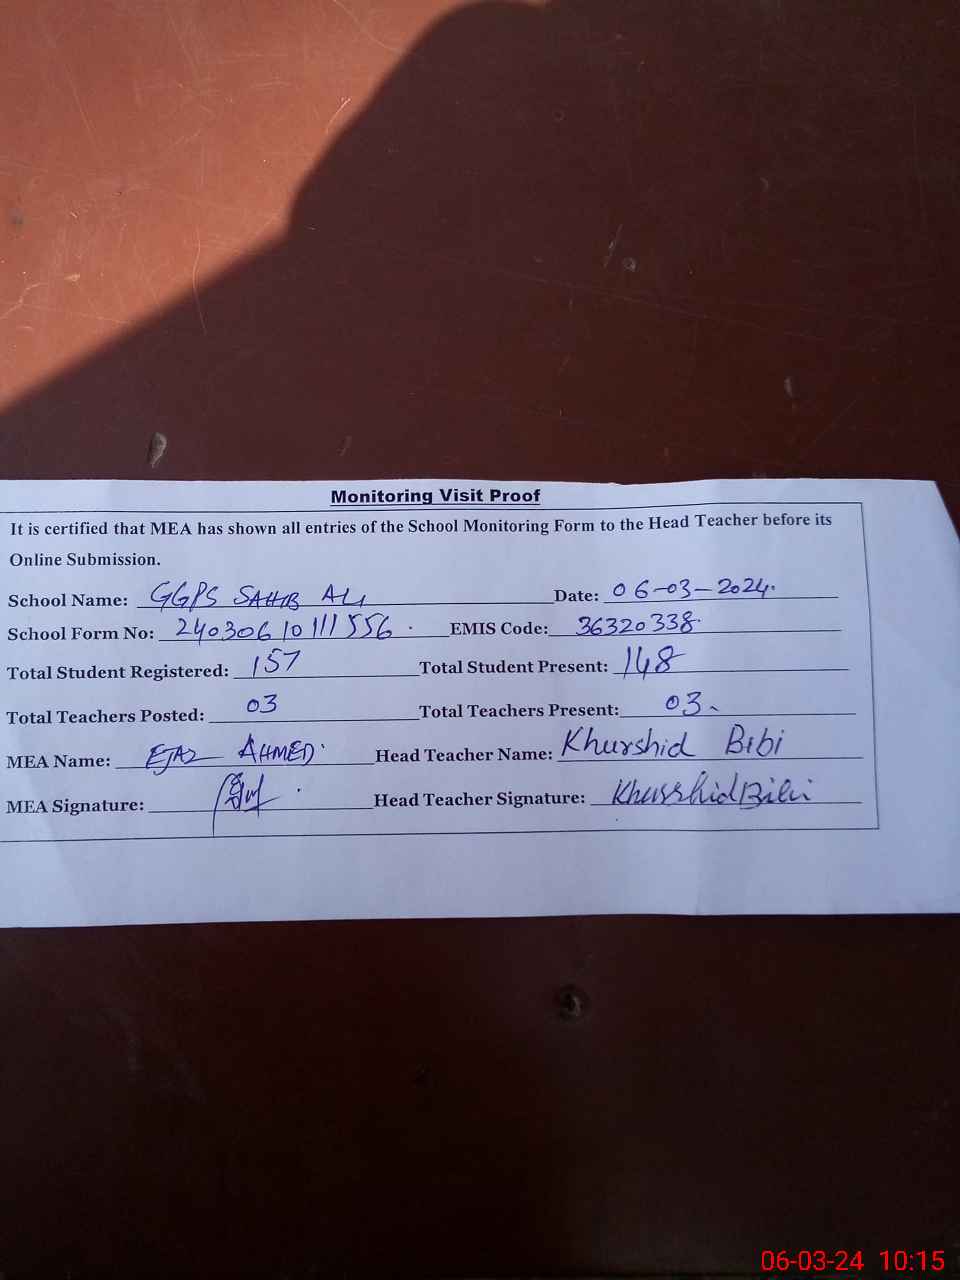 Monitoring Visit Proof
It is certified that MEA has shown all entries of the School Monitoring Form to the Head Teacher before its
Online Submission.
School Name: GGPS SAHIB ALI Date: 06-03-2024.
School Form No: 24030610111556. EMIS Code: 36320338.
Total Student Registered: 157 Total Student Present: 148
Total Teachers Posted: 03 Total Teachers Present: 03.
MEA Name: EJAZ AHMED. Head Teacher Name: Khurshid Bibi
MEA Signature: Head Teacher Signature: Khurshid Bibi
06-03-24 10:15